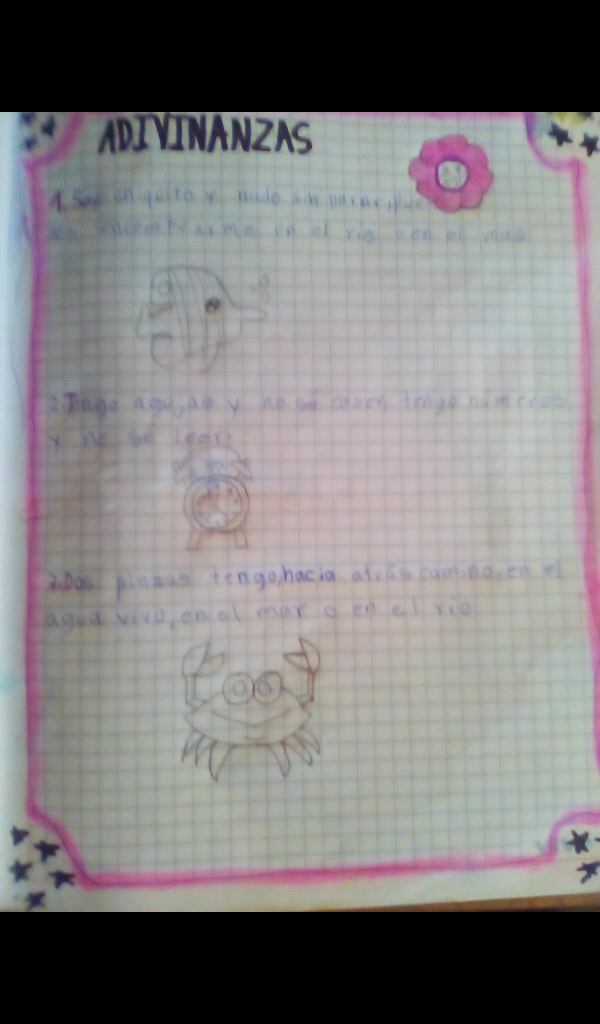 ADIVINANZAS
1. Soy chiquito y nado sin parar, pue
des encontrarme en el rio o en el mar
2. Tengo agujas y no sé coser, tengo números
y no sé leer.
3. Dos pinzas tengo, hacia atrás camino, en el
agua vivo, en el mar o en el rio